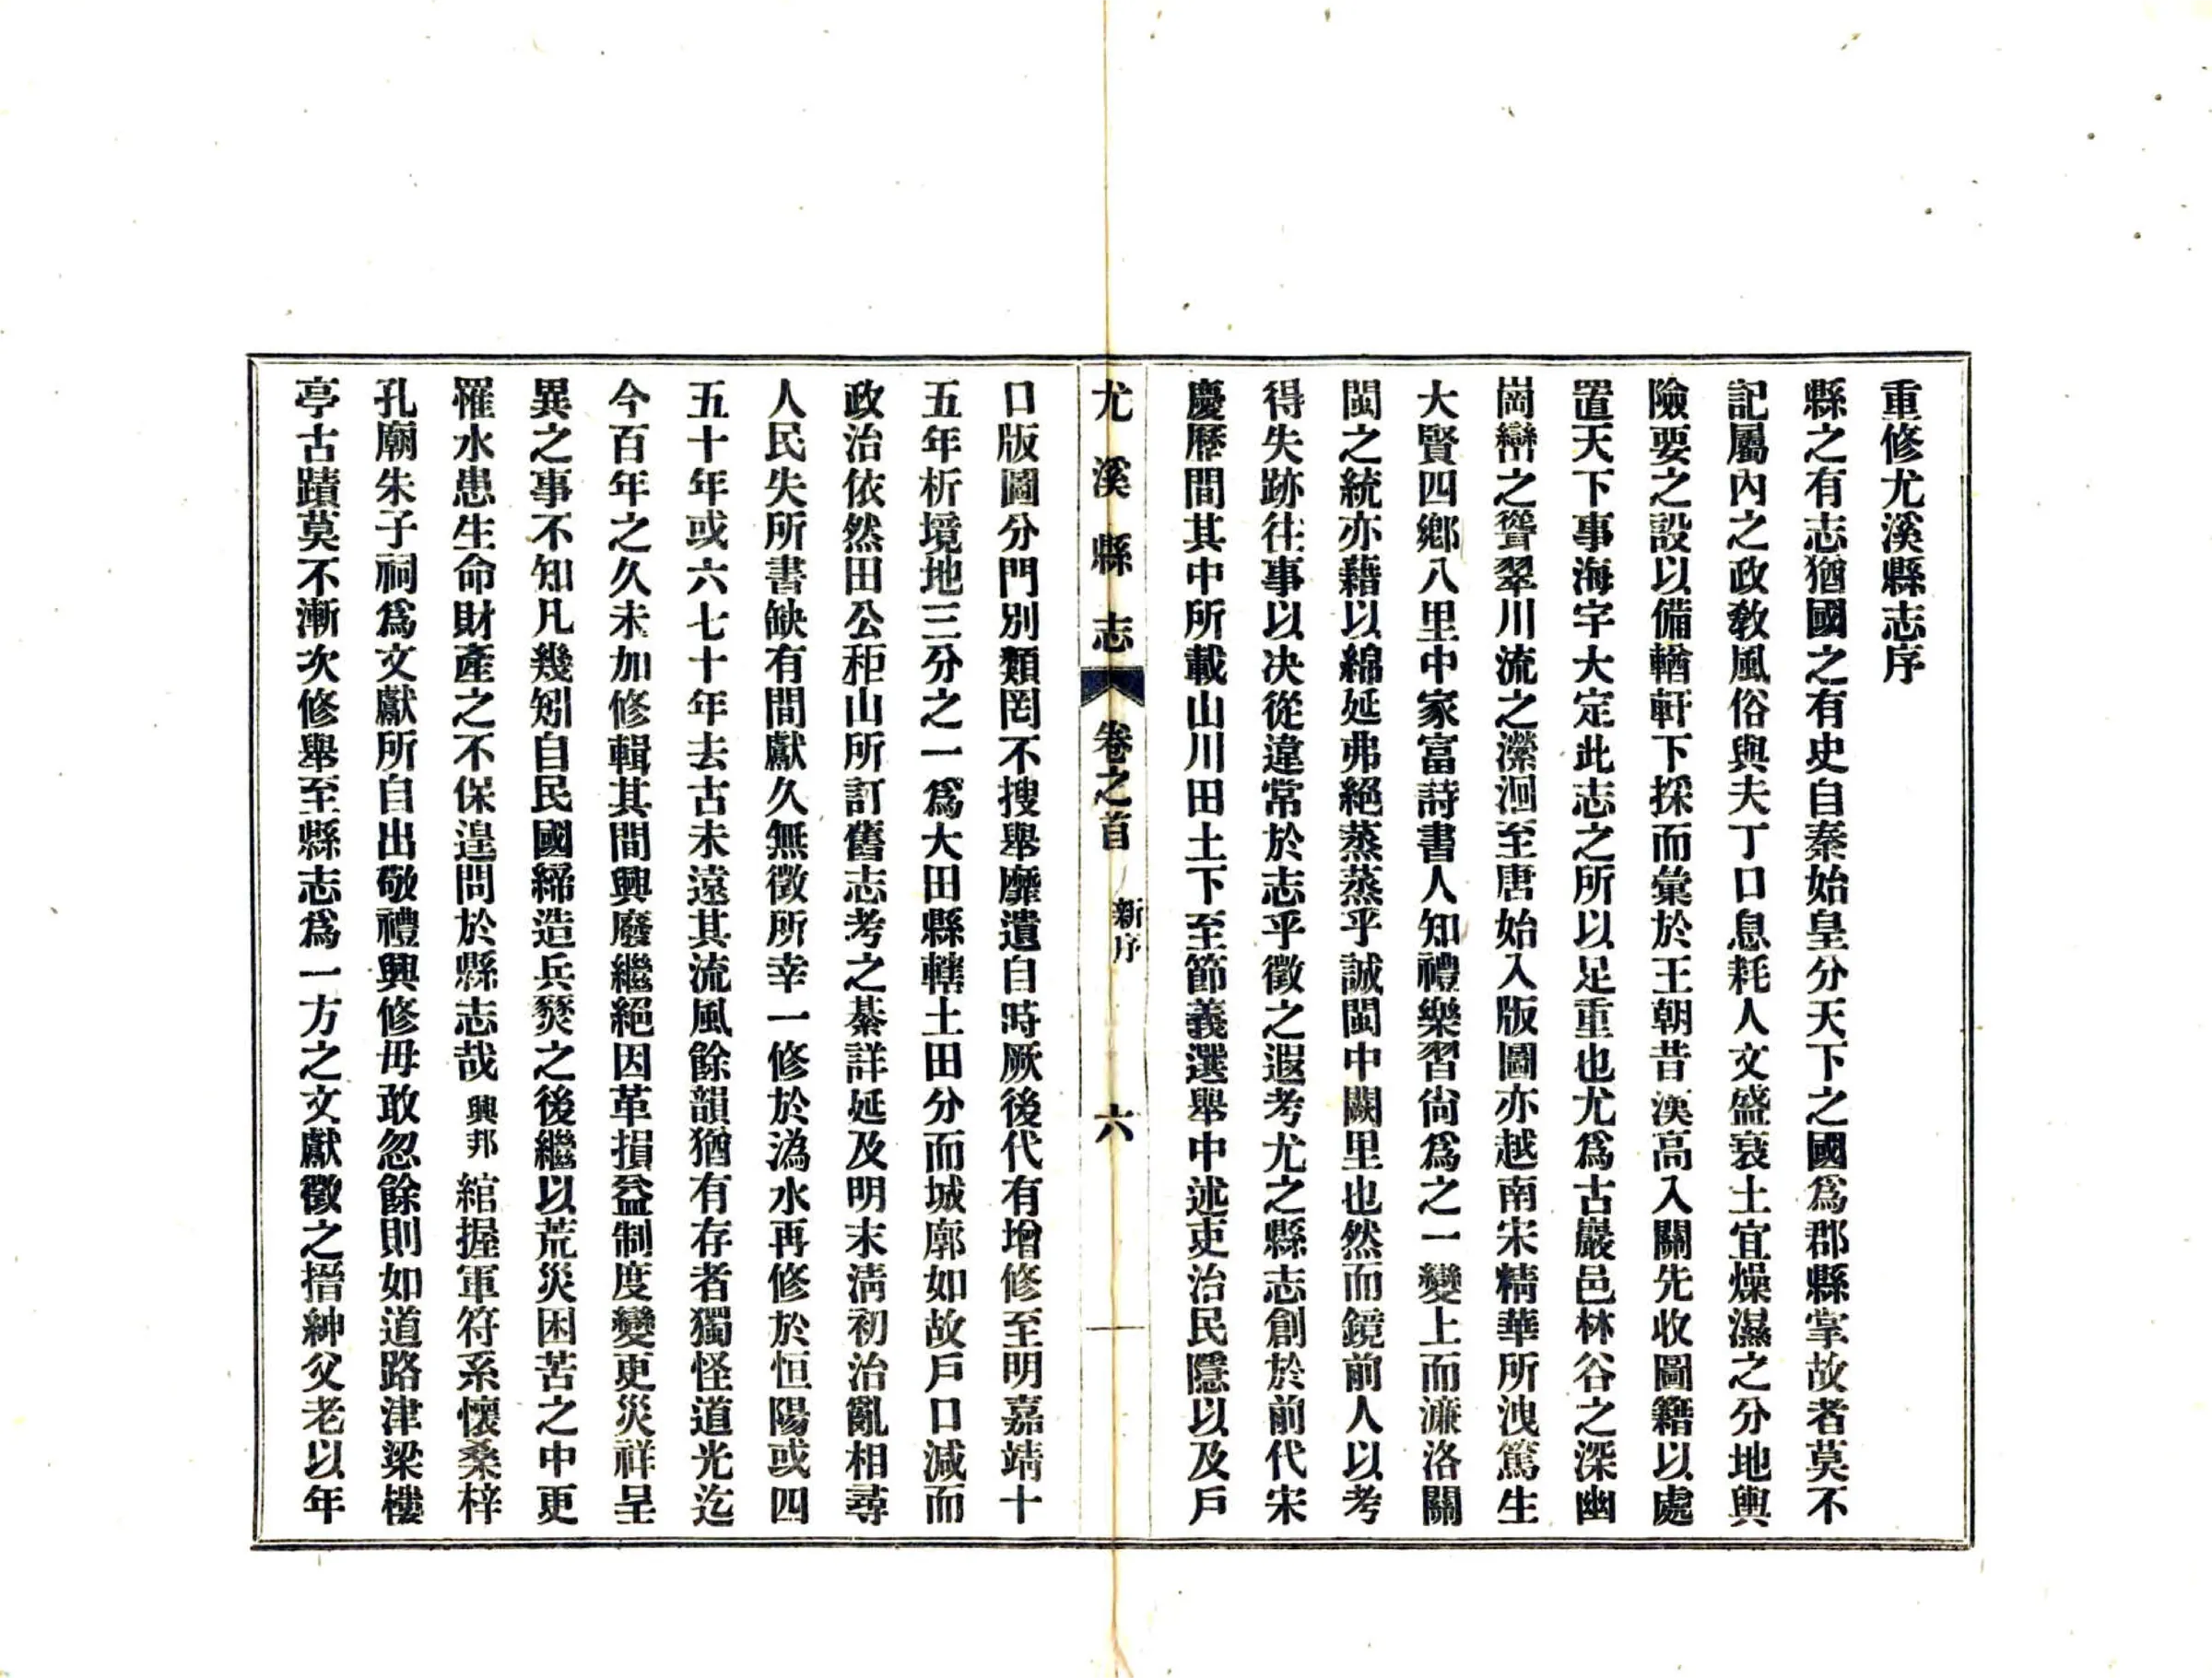 重修尤溪縣志序
縣之有志猶國之有史自秦始皇分天下之國爲郡縣掌故者莫不
記屬內之政敎風俗與夫丁口息耗人文盛衰土宜燥濕之分地輿
險要之設以備輶軒下採而彙於王朝昔漢高入關先收圖籍以處
置天下事海宇大定此志之所以足重也尤爲古巖邑林谷之深幽
崗巒之聳翠川流之瀠洄至唐始入版圖亦越南宋精華所洩篤生
大賢四鄉八里中家富詩書人知禮樂習尙爲之一變上而濂洛關
閩之統亦藉以綿延弗絕蒸蒸乎誠閩中闕里也然而鏡前人以考
得失跡往事以决從違常於志乎徵之遐考尤之縣志創於前代宋
慶歷間其中所載山川田土下至節義選舉中述吏治民隱以及戶
尤溪縣志 卷之首 新序 六
口版圖分門別類罔不搜舉靡遺自時厥後代有增修至明嘉靖十
五年析境地三分之一爲大田縣轄土田分而城廓如故戶口減而
政治依然田公秬山所訂舊志考之綦詳延及明末淸初治亂相尋
人民失所書缺有間獻久無徵所幸一修於潙水再修於恒陽或四
五十年或六七十年去古未遠其流風餘韻猶有存者獨怪道光迄
今百年之久未加修輯其間興廢繼絕因革損益制度變更災祥呈
異之事不知凡幾矧自民國締造兵燹之後繼以荒災困苦之中更
罹水患生命財產之不保遑問於縣志哉興邦綰握軍符系懷桑梓
孔廟朱子祠爲文獻所自出敬禮興修毋敢忽餘則如道路津梁樓
亭古蹟莫不漸次修舉至縣志爲一方之文獻徵之搢紳父老以年